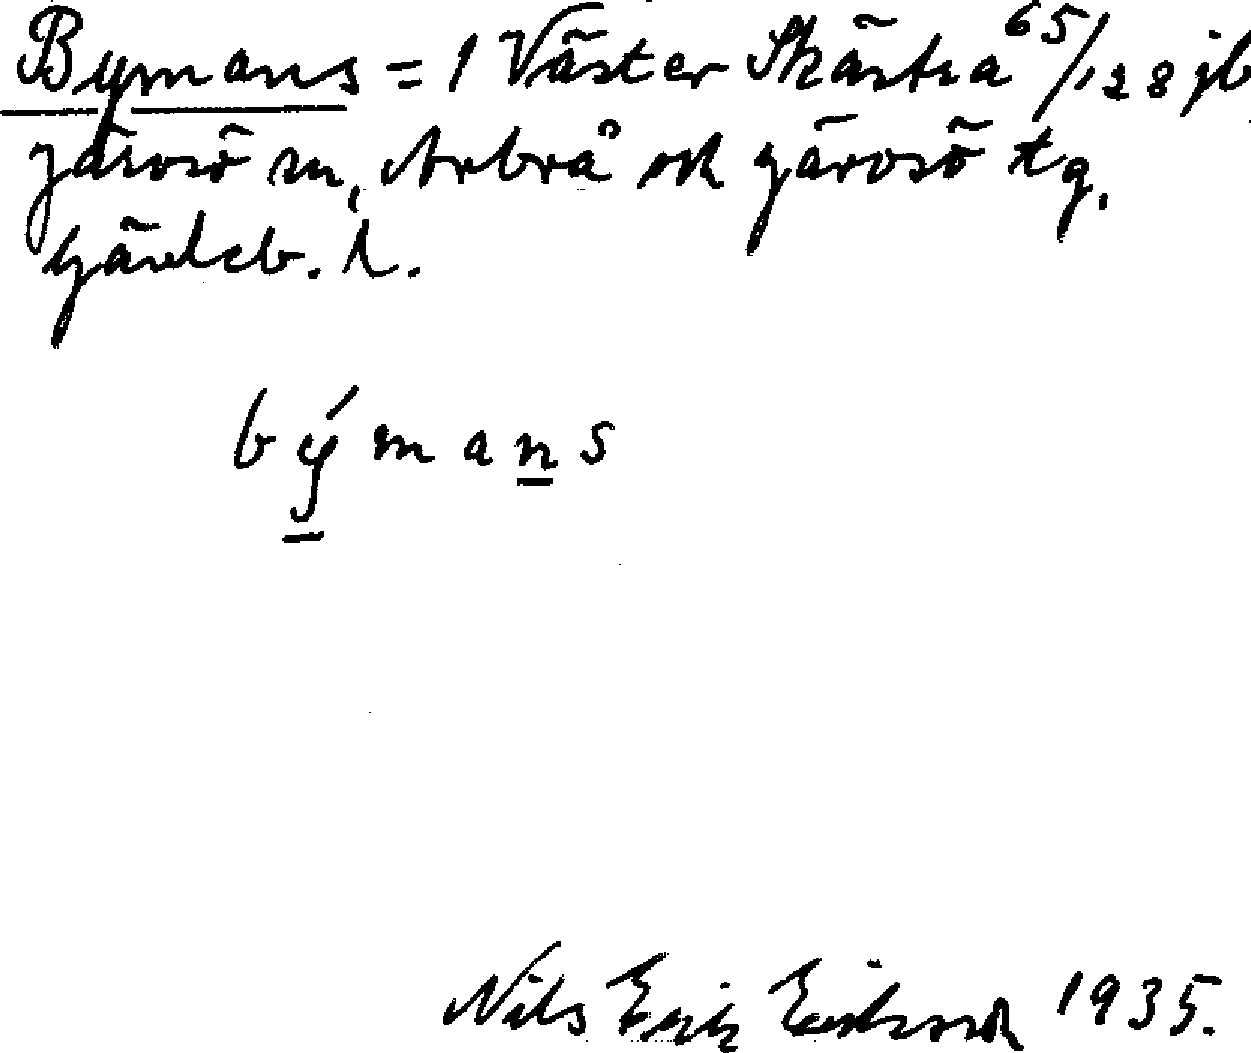 Bymans = 1 Väster Skästra 65/128 jb
järvsö sn, Arbrå och järvsö tg,
gävleb. l.
býmans
Nils Erik Eriksson 1935.